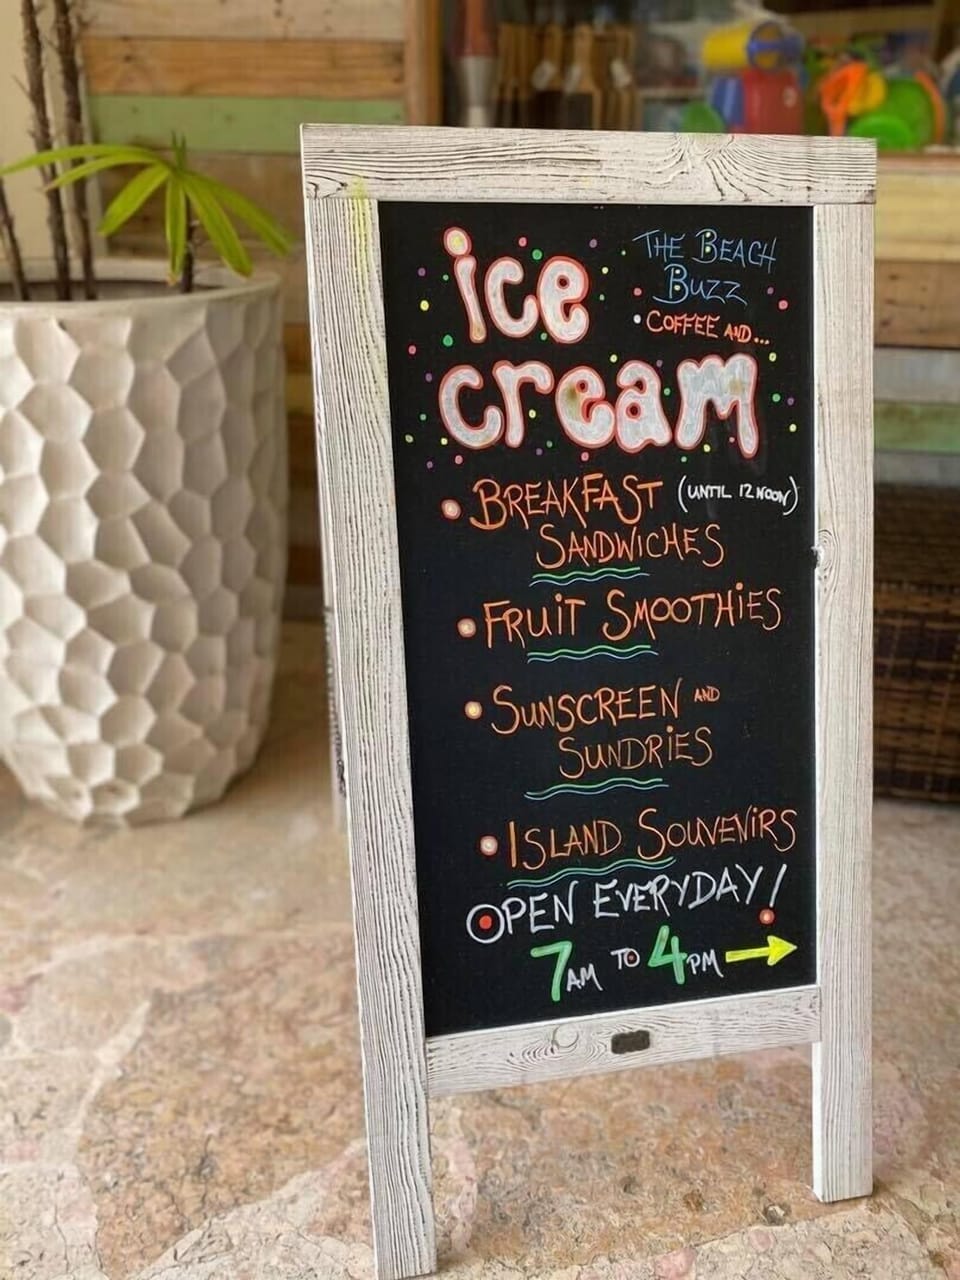 ice
cream
THE BEACH
BUZZ
• COFFEE AND...
• BREAKFAST (UNTIL 12 NOON)
SANDWICHES
• FRUIT SMOOTHIES
• SUNSCREEN AND
SUNDRIES
• ISLAND SOUVENIRS
OPEN EVERYDAY!
7AM TO 4PM →